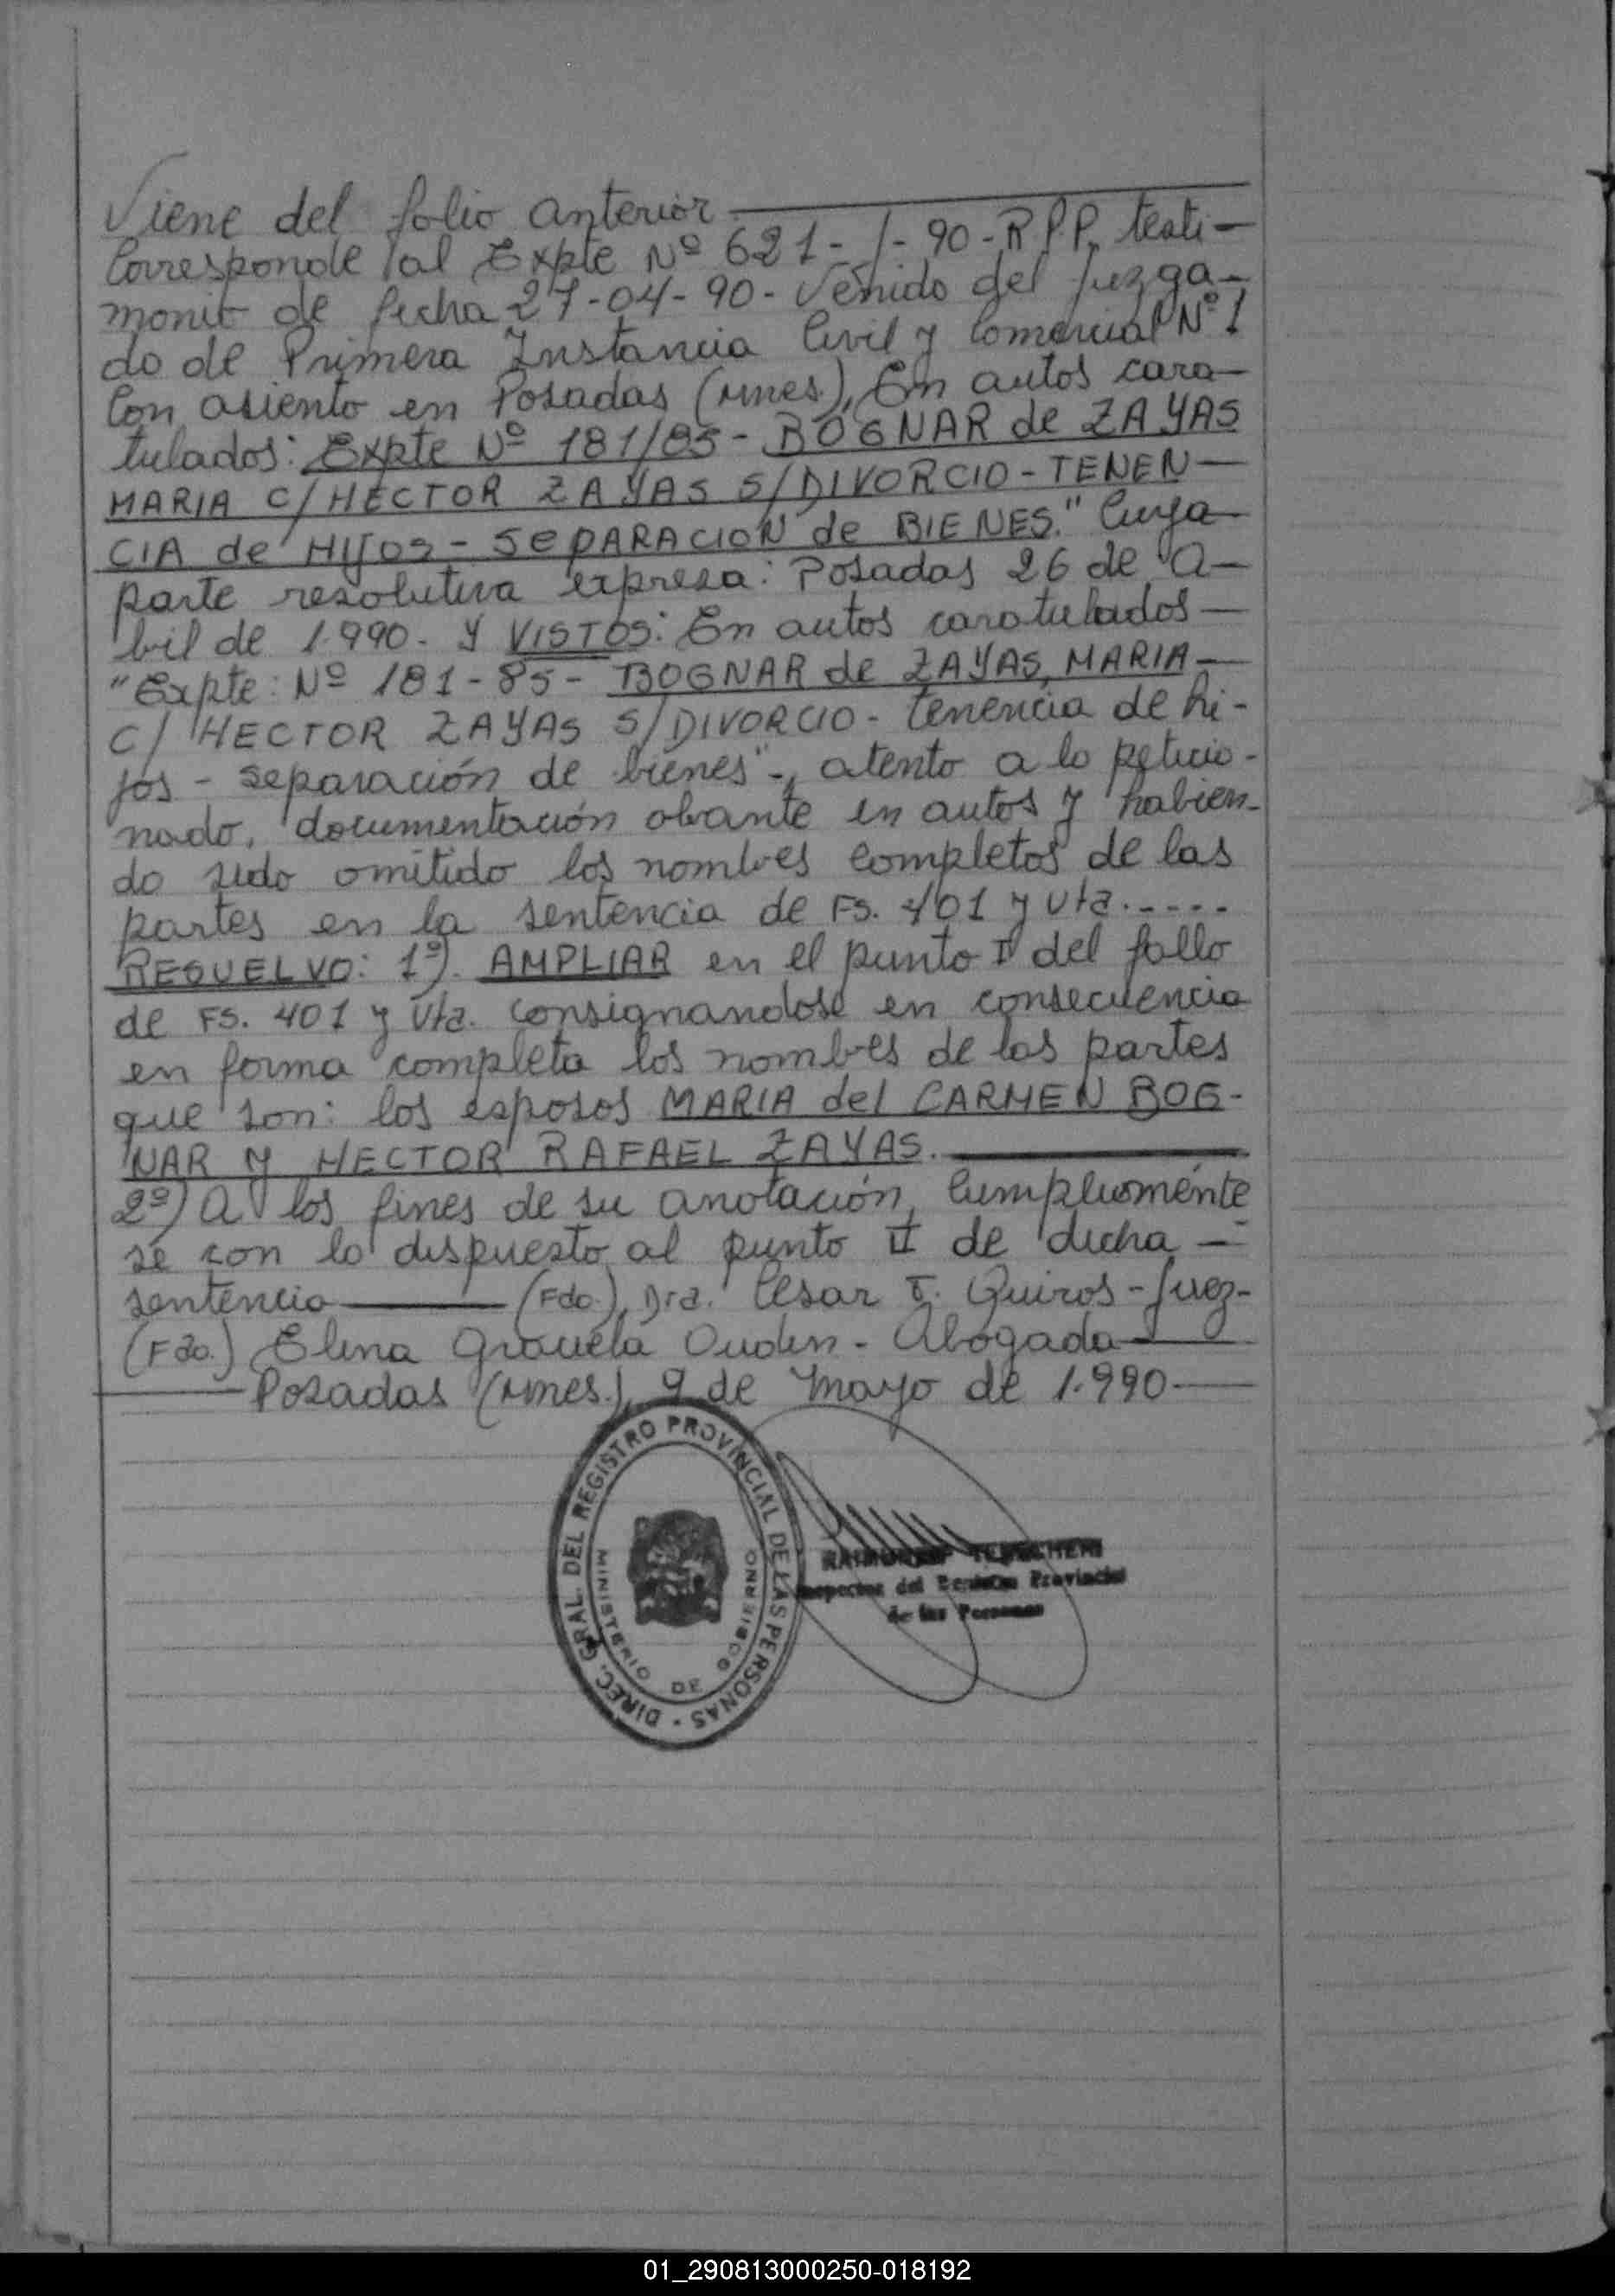 Viene del folio anterior
Corresponde al Expte Nº 621-/-90-R.P.P. testi-
monio de fecha 27-04-90- Venido del Juzga-
do de Primera Instancia Civil y Comercial Nº 1
Con asiento en Posadas (Mnes.), En autos cara-
tulados: Expte Nº 181/85- BOGNAR de ZAYAS
MARIA C/HECTOR ZAYAS S/DIVORCIO-TENEN-
CIA de HIJOS-SEPARACION de BIENES." Cuya
parte resolutiva expresa: Posadas 26 de A-
bril de 1.990- Y VISTOS: En autos caratulados
"Expte: Nº 181-85- BOGNAR de ZAYAS, MARIA
C/ HECTOR ZAYAS S/DIVORCIO- tenencia de hi-
jos - separación de bienes"-, atento a lo peticio-
nado, documentación obrante en autos y habien-
do sido omitido los nombres completos de las
partes en la sentencia de FS. 401 y Vta.-----
RESUELVO: 1º). AMPLIAR en el punto II del fallo
de FS. 401 y Vta. consignandose en consecuencia
en forma completa los nombres de las partes
que son: los esposos MARIA del CARMEN BOG-
NAR Y HECTOR RAFAEL ZAYAS.
2º) A los fines de su anotación, Cumplimente
se con lo dispuesto al punto II de dicha
sentencia (Fdo.), Dra. Cesar Quiros - Juez-
(Fdo.) Elena Graciela - Abogada
Posadas (Mnes.), 9 de Mayo de 1.990
DIREC. GRAL. DEL REGISTRO PROVINCIAL DE LAS PERSONAS -
MINISTERIO DE GOBIERNO
Inspector del Registro Provincial
de las Personas
01_290813000250-018192